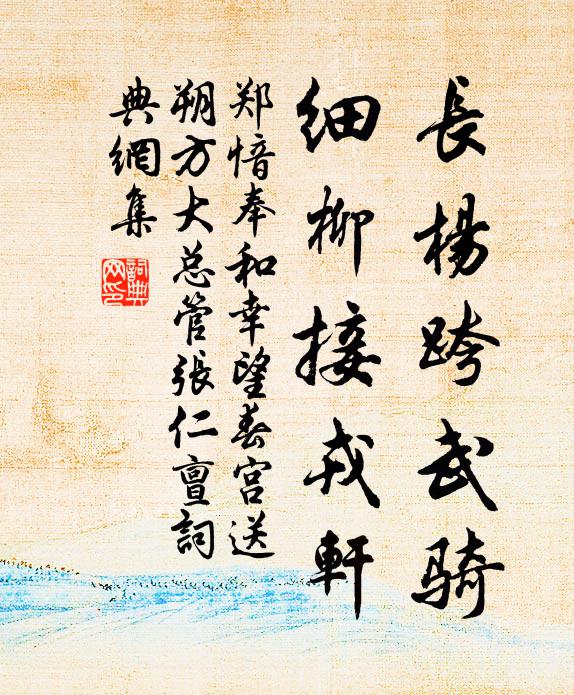 長楊跨武骑
细柳接戎軒
郑愔奉和幸望春宫送
朔方大总管張仁亶詞
典網集
詞典
网印